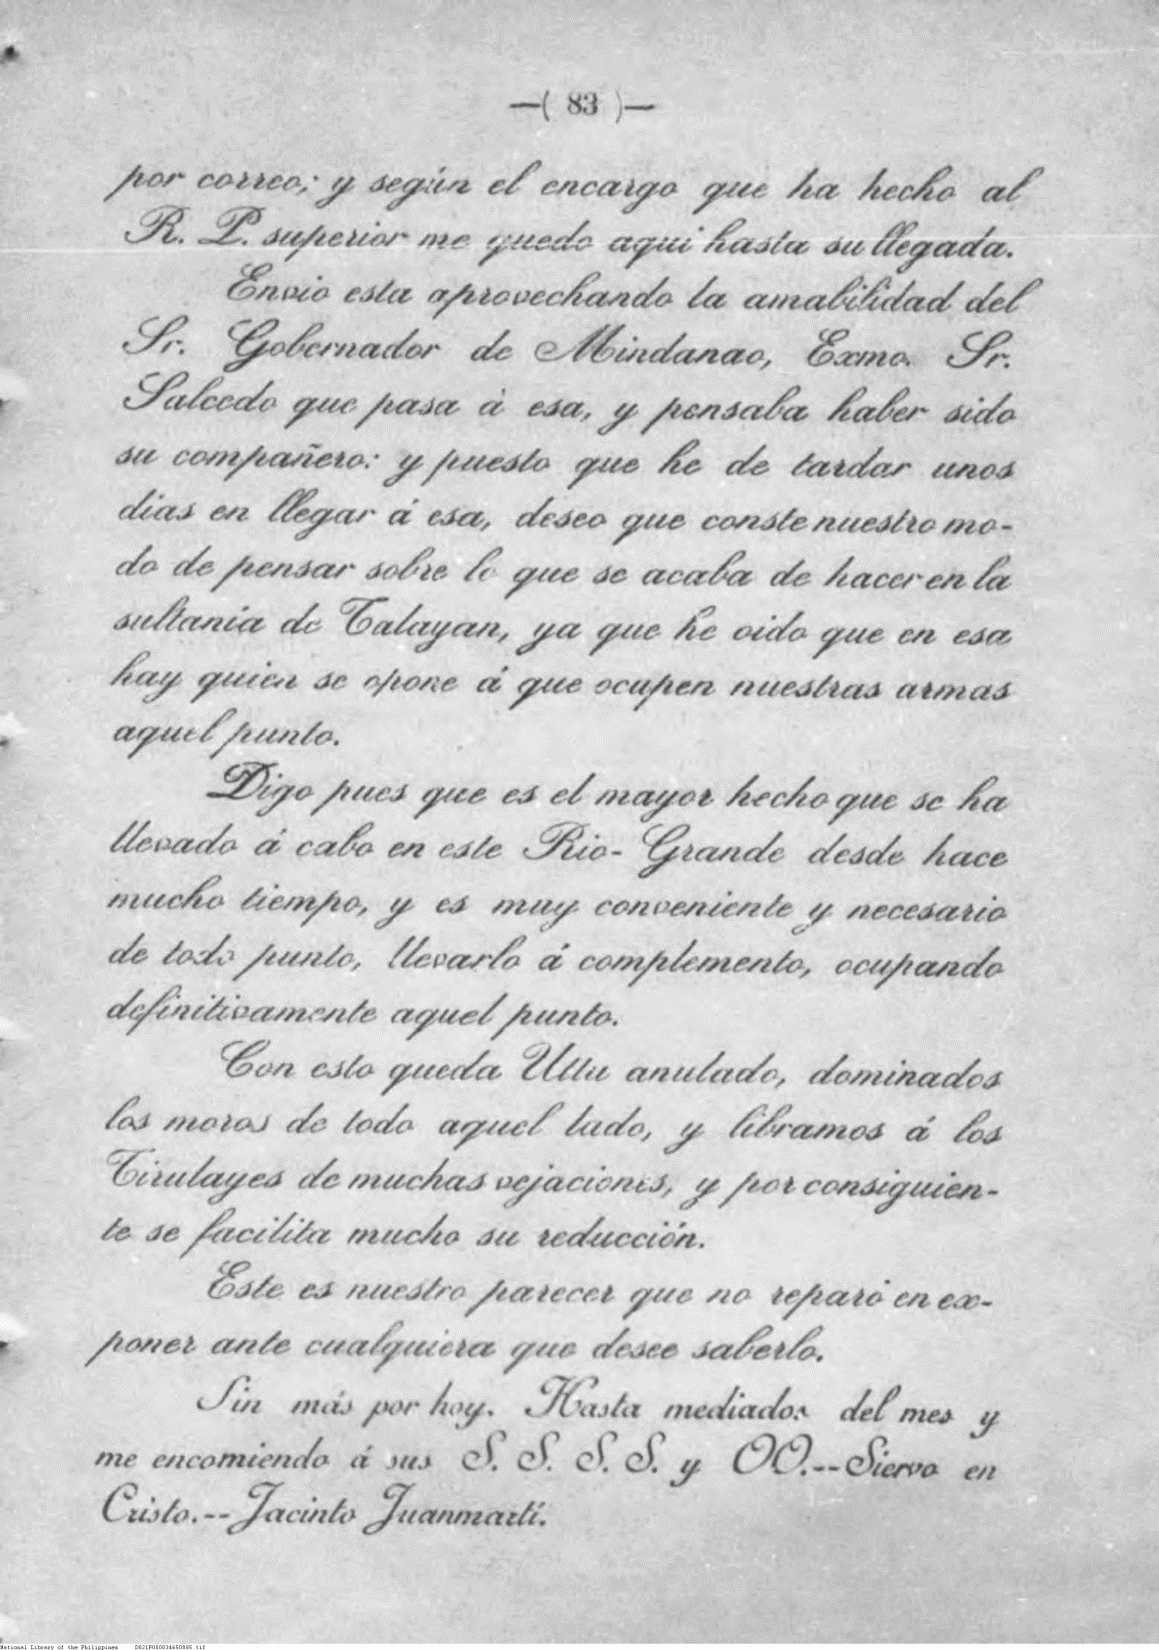 —( 83 )—
por correo; y según el encargo que ha hecho al
R. P. superior me quedo aqui hasta su llegada.
Envio esta aprovechando la amabilidad del
Sr. Gobernador de Mindanao, Exmo. Sr.
Salcedo que pasa á esa, y pensaba haber sido
su compañero: y puesto que he de tardar unos
dias en llegar á esa, deseo que conste nuestro mo-
do de pensar sobre lo que se acaba de hacer en la
sultania de Talayan, ya que he oido que en esa
hay quien se opone á que ocupen nuestras armas
aquel punto.
Digo pues que es el mayor hecho que se ha
llevado á cabo en este Rio-Grande desde hace
mucho tiempo, y es muy conveniente y necesario
de todo punto, llevarlo á complemento, ocupando
definitivamente aquel punto.
Con esto queda Uttu anulado, dominados
los moros de todo aquel lado, y libramos á los
Tirulayes de muchas vejaciones, y por consiguien-
te se facilita mucho su reducción.
Este es nuestro parecer que no reparó en ex-
poner ante cualquiera que desee saberlo.
Sin más por hoy. Hasta mediados del mes y
me encomiendo á sus S. S. S. S. y OO.--Siervo en
Cristo.--Jacinto Juanmartí.
National Library of the Philippines